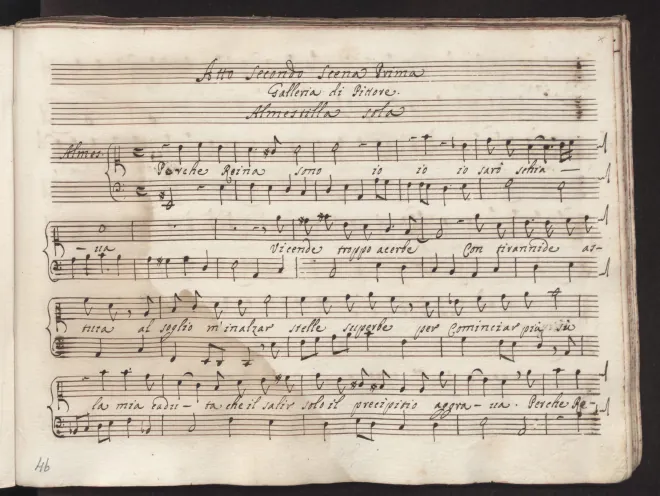 Atto Secondo Scena Prima
Galleria di Pitture.
Almestilla sola
Almes.
Perche Reina sono io io io sarò schia—
—ua Vicende troppo acerbe Con tirannide as-
tuta al soglio m'inalzar stelle superbe per Cominciar più sù
la mia cadu—ta che il salir solo il precipitio aggra—ua. Perche Re-
46